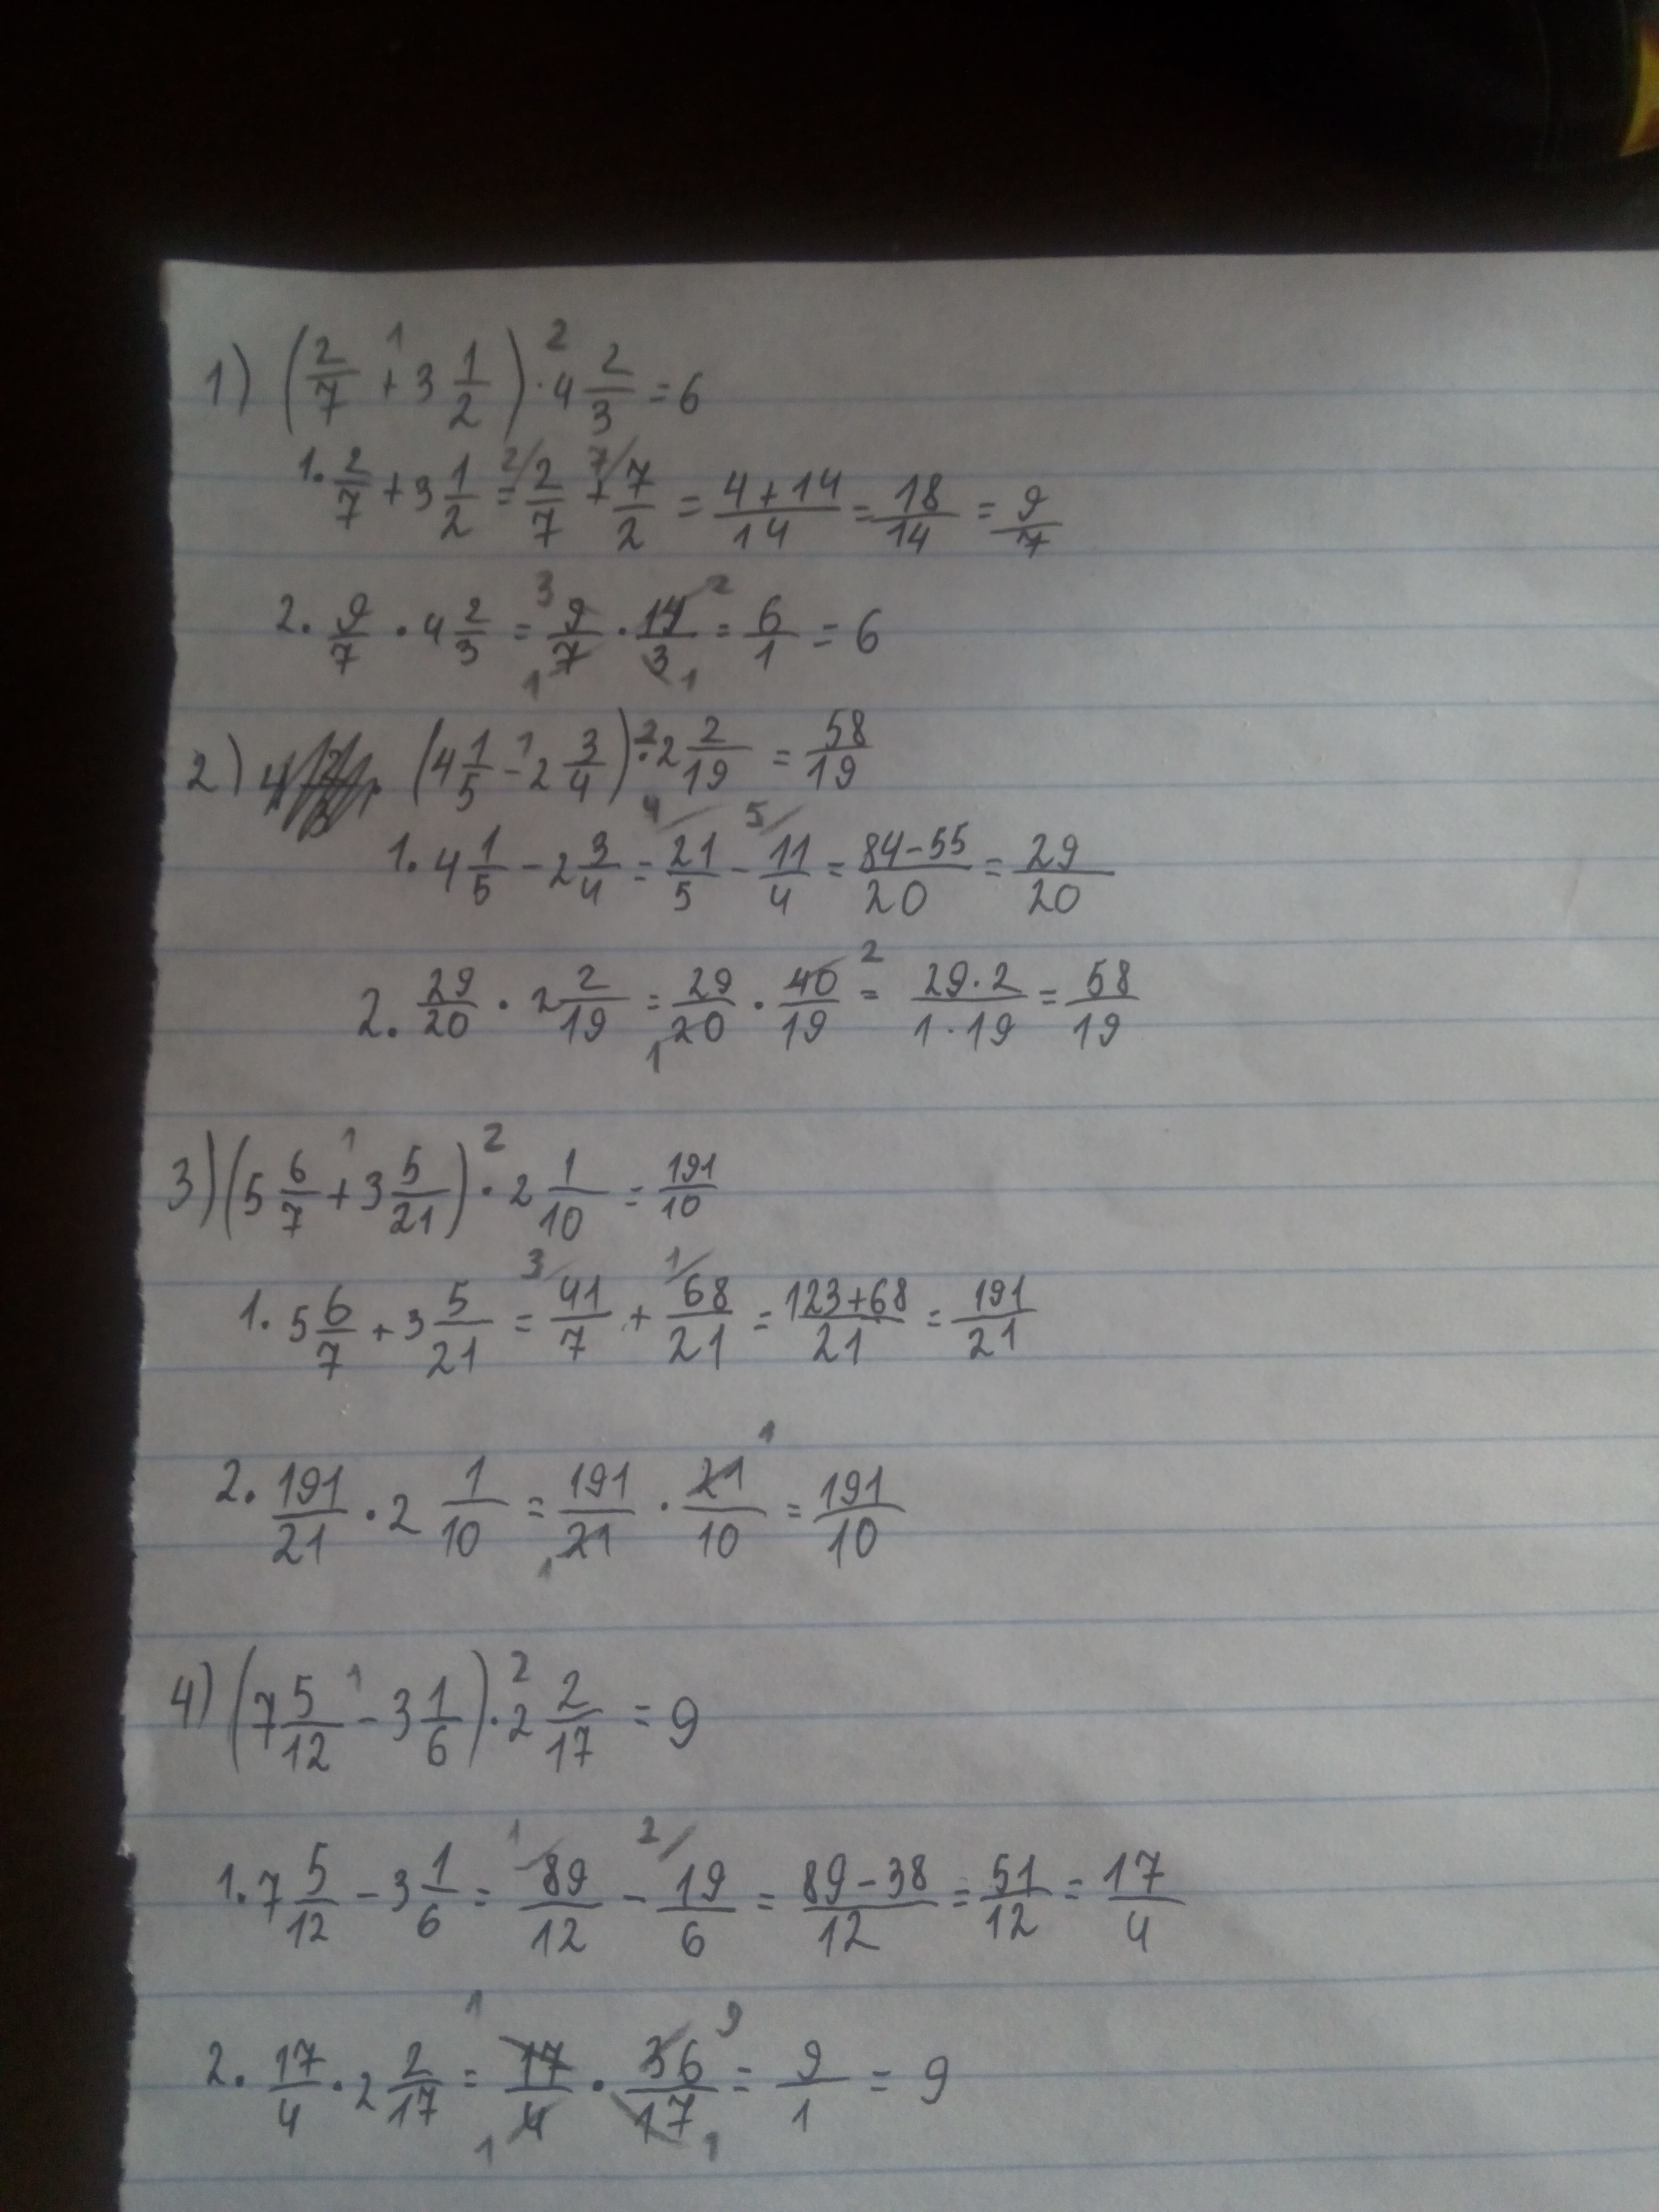 1) (2/7 + 3 1/2) · 4 2/3 = 6
1. 2/7 + 3 1/2 = 2/7 + 7/2 = (4+14)/14 = 18/14 = 9/7
2. 9/7 · 4 2/3 = 9/7 · 14/3 = 6/1 = 6
2) (4 1/5 - 2 3/4) · 2 2/19 = 58/19
1. 4 1/5 - 2 3/4 = 21/5 - 11/4 = (84-55)/20 = 29/20
2. 29/20 · 2 2/19 = 29/20 · 40/19 = (29·2)/(1·19) = 58/19
3) (5 6/7 + 3 5/21) · 2 1/10 = 191/10
1. 5 6/7 + 3 5/21 = 41/7 + 68/21 = (123+68)/21 = 191/21
2. 191/21 · 2 1/10 = 191/21 · 21/10 = 191/10
4) (7 5/12 - 3 1/6) · 2 2/17 = 9
1. 7 5/12 - 3 1/6 = 89/12 - 19/6 = (89-38)/12 = 51/12 = 17/4
2. 17/4 · 2 2/17 = 17/4 · 36/17 = 9/1 = 9